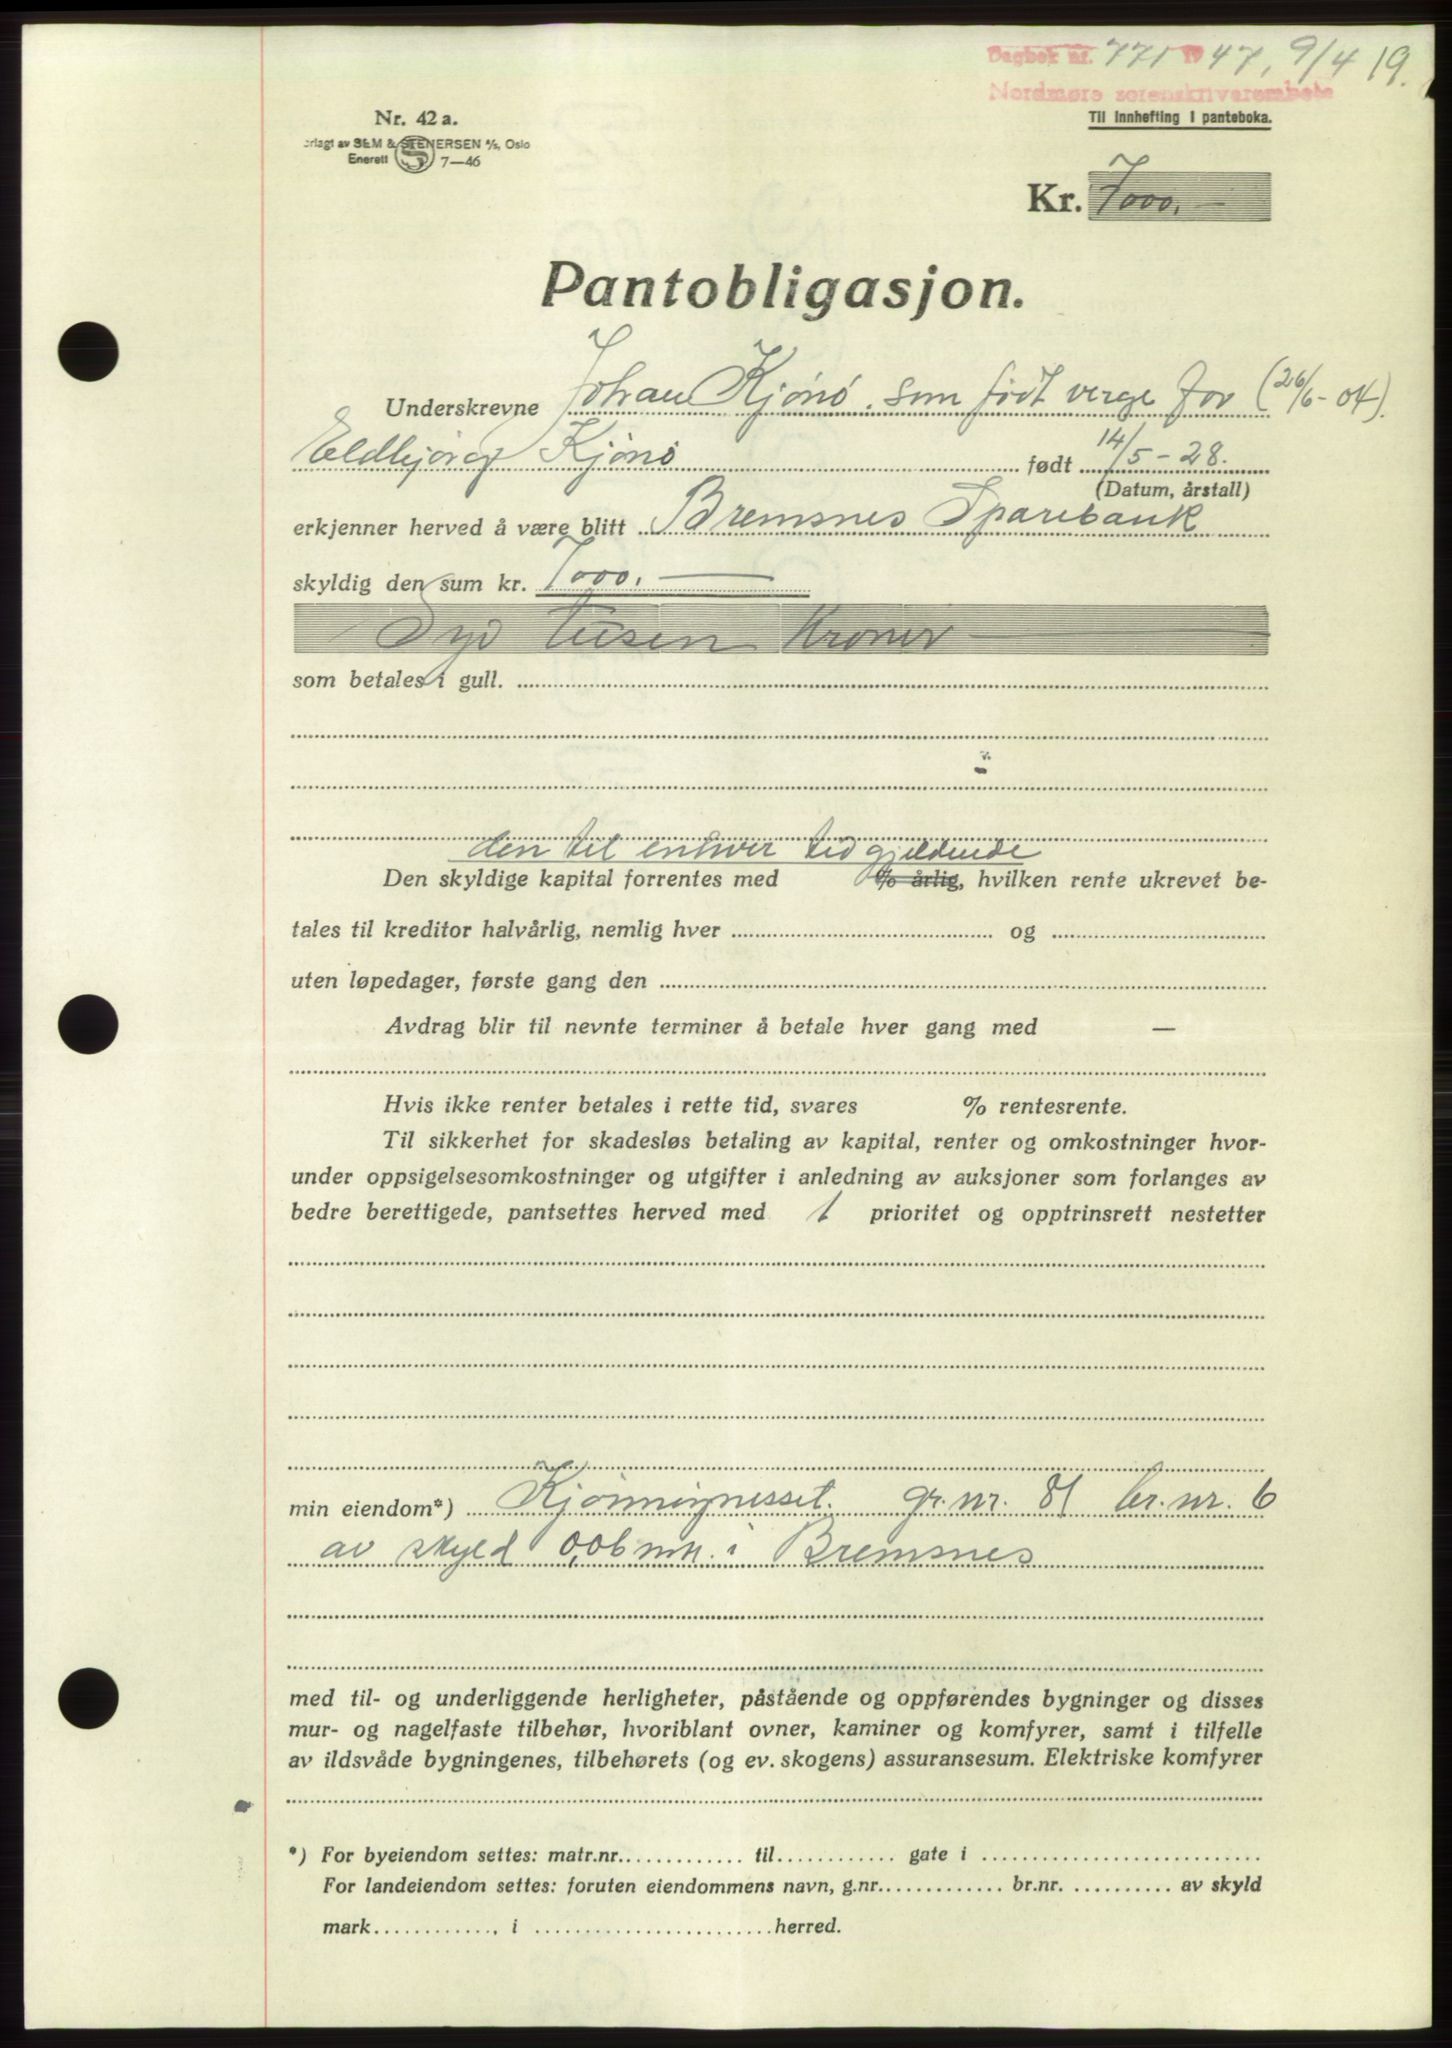 Dagbok nr. 771 1947, 9/4 19.
Nordmøre sorenskriverembete
Nr. 42 a.
Til innhefting i panteboka.
rlagt av SEM & STENERSEN A/S, Oslo
Enerett S 7—46
Kr. 7000.—
Pantobligasjon.
Underskrevne Johan Kjönö. som födt verge for (26/6-04).
Eldbjörg Kjönö født 14/5-28.
(Datum, årstall)
erkjenner herved å være blitt Bremsnes Sparebank
skyldig den sum kr. 7000.—
Syv tusen Kroner
som betales i gull.
den til enhver tid gjeldende
Den skyldige kapital forrentes med % årlig, hvilken rente ukrevet be-
tales til kreditor halvårlig, nemlig hver og
uten løpedager, første gang den
Avdrag blir til nevnte terminer å betale hver gang med —
Hvis ikke renter betales i rette tid, svares % rentesrente.
Til sikkerhet for skadesløs betaling av kapital, renter og omkostninger hvor-
under oppsigelsesomkostninger og utgifter i anledning av auksjoner som forlanges av
bedre berettigede, pantsettes herved med 1 prioritet og opptrinsrett nestetter
min eiendom*) gr.nr. 81 br.nr. 6
av skyld 0,06 mrk. i Bremsnes
med til- og underliggende herligheter, påstående og oppførendes bygninger og disses
mur- og nagelfaste tilbehør, hvoriblant ovner, kaminer og komfyrer, samt i tilfelle
av ildsvåde bygningenes, tilbehørets (og ev. skogens) assuransesum. Elektriske komfyrer
*) For byeiendom settes: matr.nr. til gate i
For landeiendom settes: foruten eiendommens navn, g.nr. br.nr. av skyld
mark , i herred.